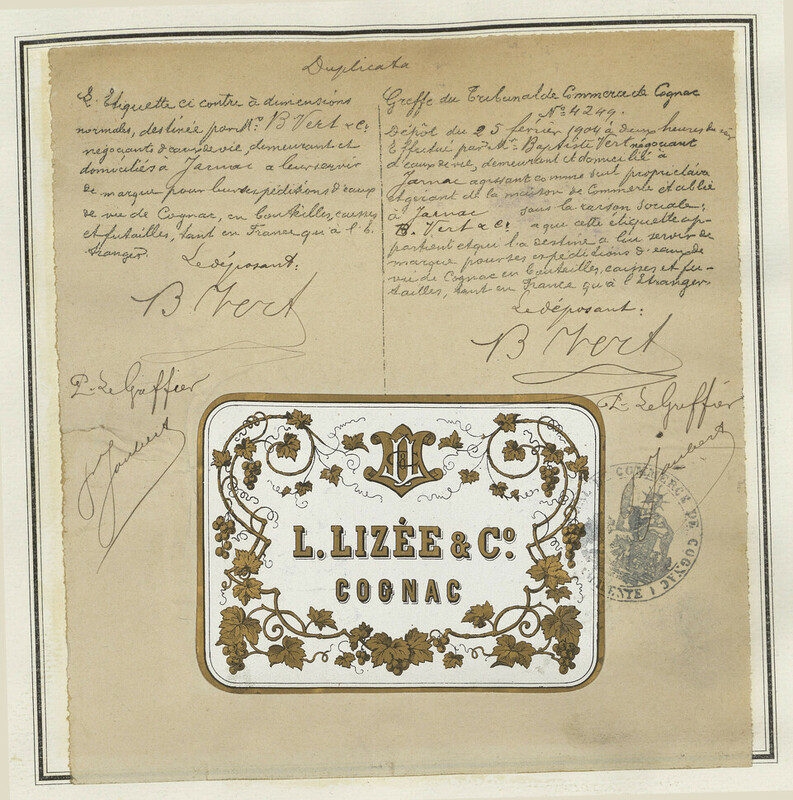 Duplicata
L'Etiquette ci contre à dimensions
normales, destinée par Mr. B Vert & Co
négociants d'eaux de vie, demeurant et
domiciliés à Jarnac a leur servir
de marque pour leurs expéditions d'eaux
de vie de Cognac, en bouteilles, caisses
et futailles, tant en France qu'à l'E-
tranger.
Le déposant:
B Vert
P. Le Greffier
Joubert
Greffe du Tribunal de Commerce de Cognac
No 4249.
Dépôt du 25 février 1904 à deux heures du soir
Effectué par Mr. Baptiste Vert négociant
d'eaux de vie, demeurant et domicilié à
Jarnac agissant comme seul propriétaire
et gérant de la maison de Commerce établie
à Jarnac sous la raison sociale:
B. Vert & Co. a que cette étiquette ap-
partient et qui l'a destine a lui servir de
marque pour ses expéditions d'eaux de
vie de Cognac en bouteilles, caisses et fu-
tailles, tant en France qu'à l'Etranger.
Le déposant:
B Vert
P. Le Greffier
Joubert
L. LIZÉE & Co.
COGNAC
COMMERCE DE COGNAC